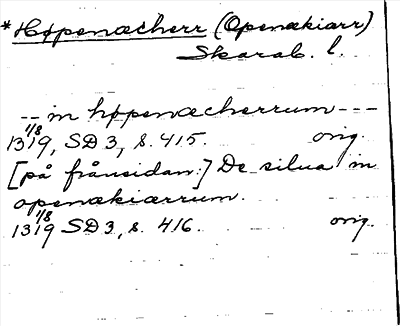 *Høpenæcherr (Openækiarr)
Skarab. l.
-- in høpenæcherrum ---
1319 1/8, SD 3, s. 415. orig.
[på frånsidan:] De silua in
openækiærrum.
1319 1/8 SD 3, s. 416. orig.